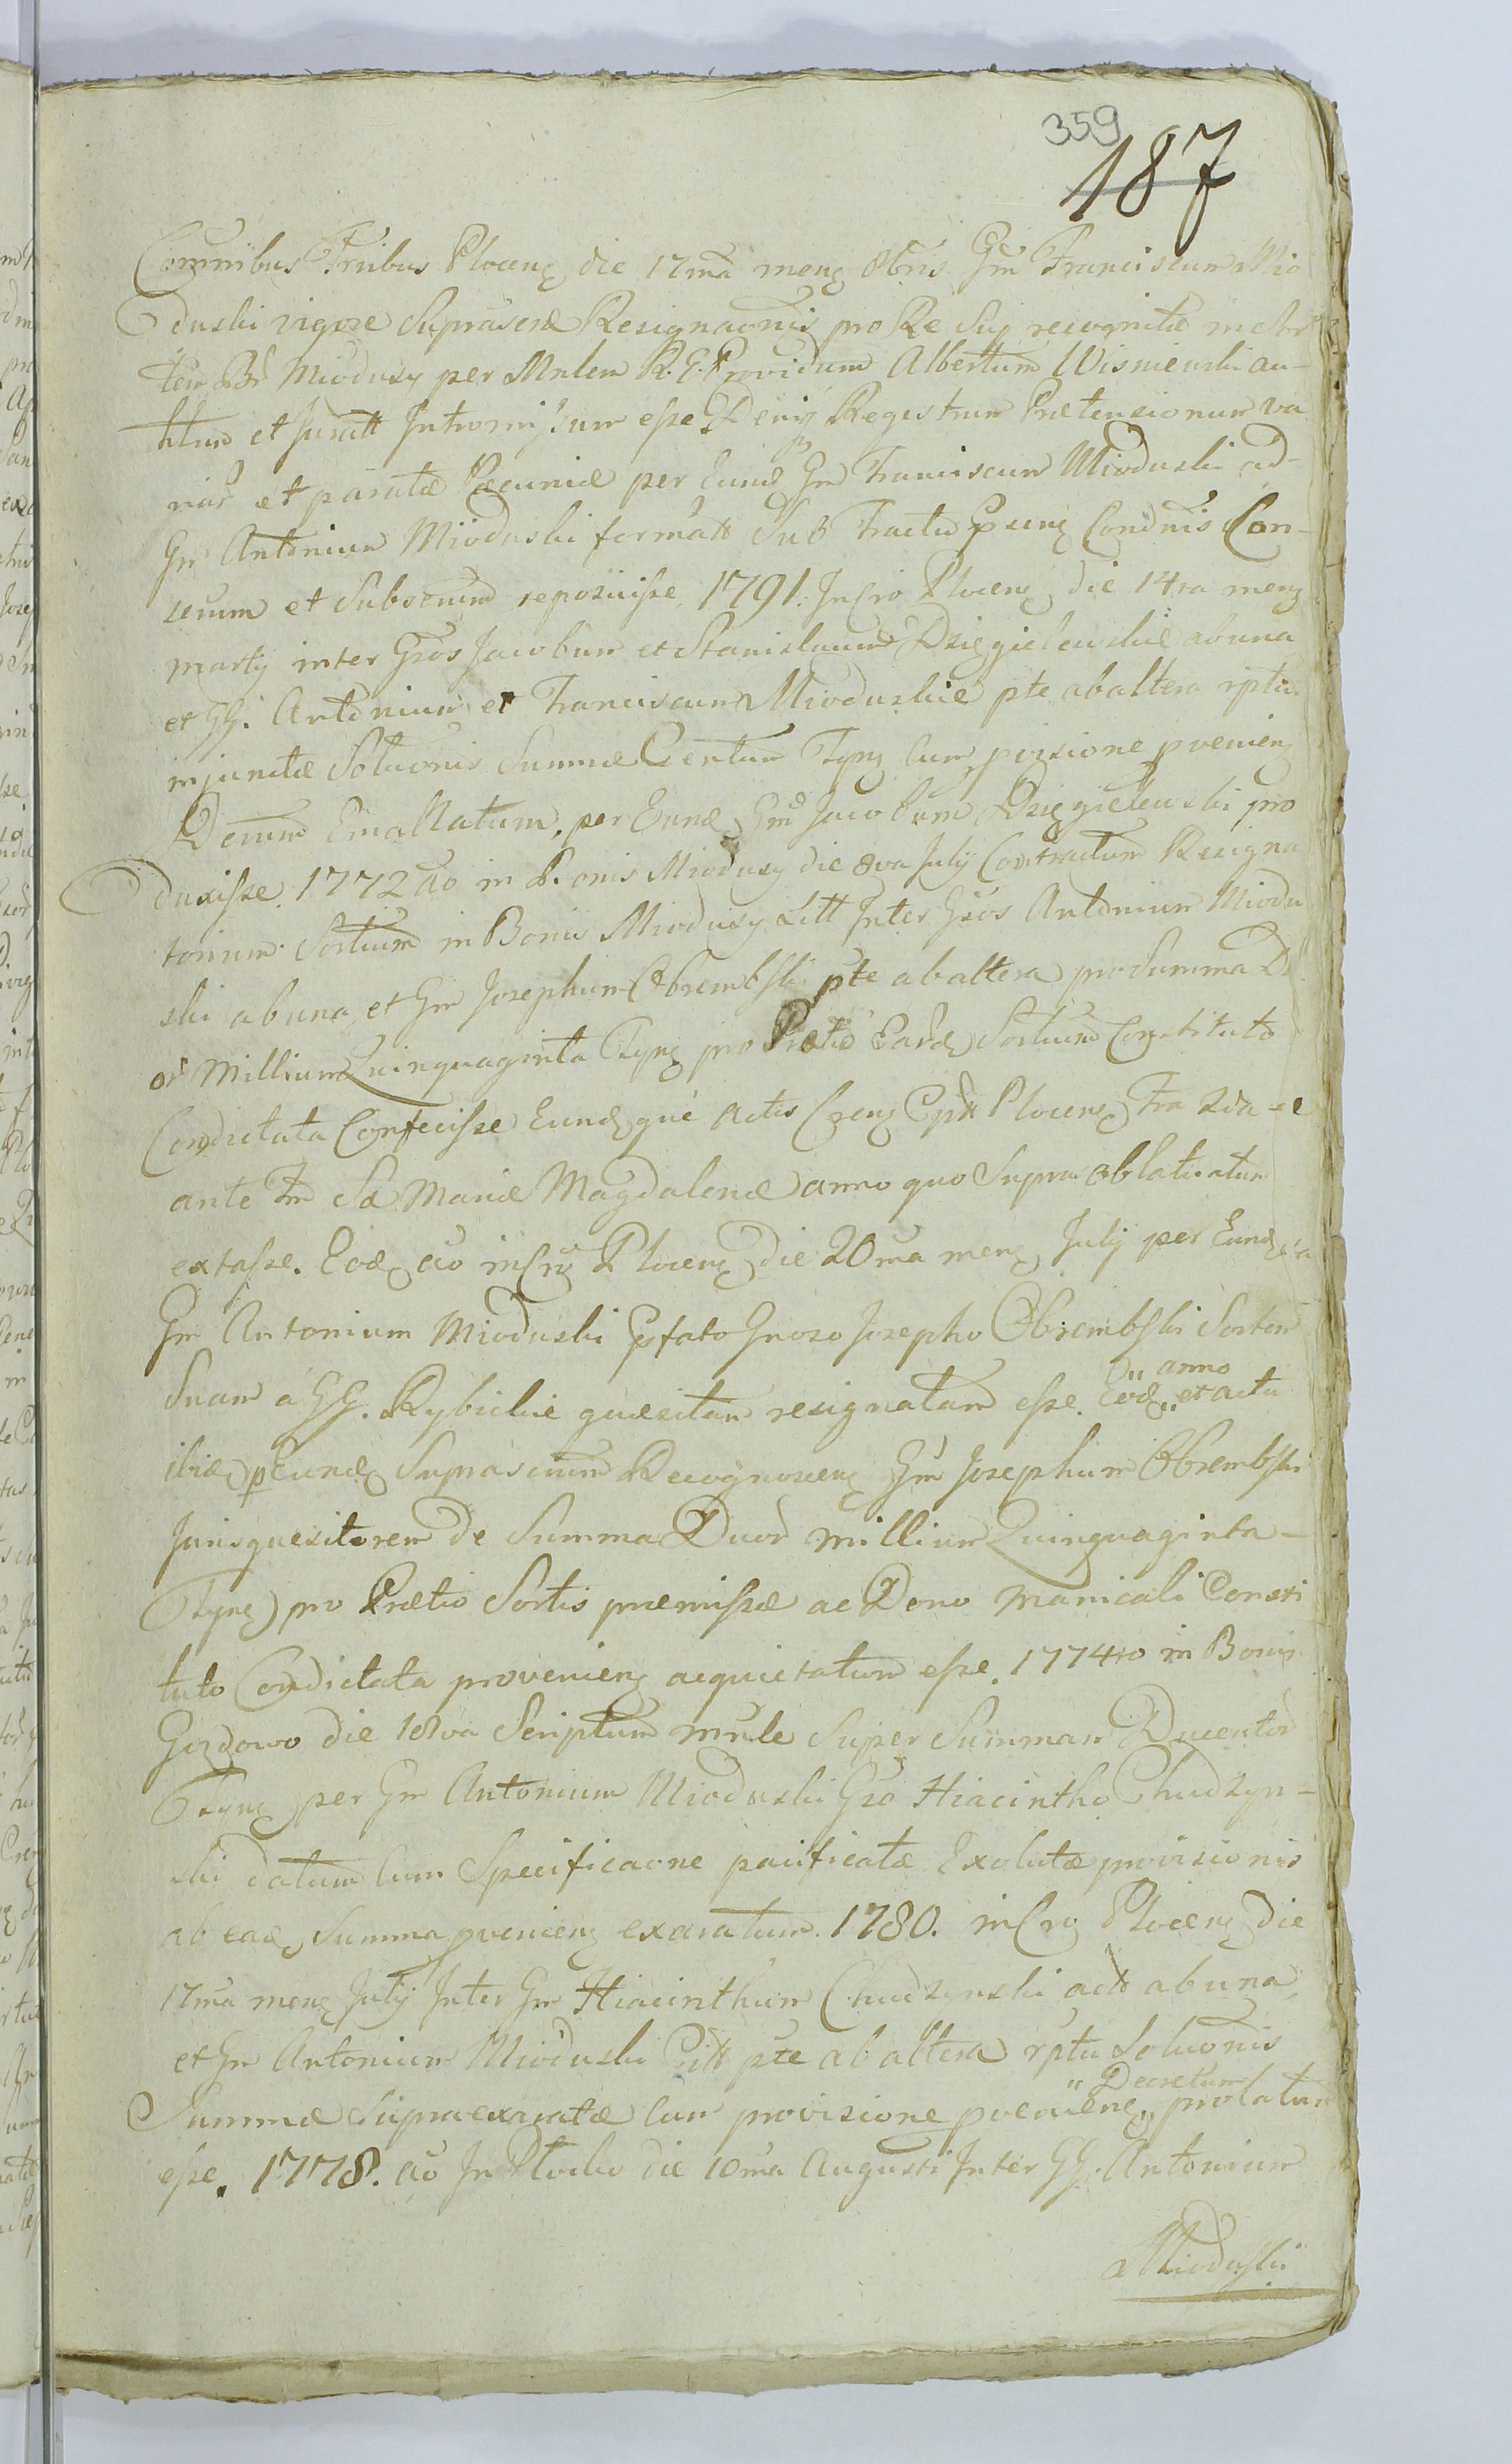 359
187
Comnibus Fribus Plocenß die 17ma menß 8bris Gm Franciscum Mio
duski vigore Suprascrae Resignaonis pro Re Suj recognitae in Sor
tem Br Miodusy per Mnlem R. G. Providum Albertum Wisniewski au-
htum et Juratt Intromissum esse Deniq Regestrum Praetensionum va
rias et paratae Pecuniae per Eund Gm Franciscum Mioduski ad
Gm Antonium Mioduski formatt Sub Tractu Epsenß Condnis Con-
scrum et Subscrum reposuisse 1791. In Cro Plocenß die 14ta menß
marty inter Gsos Jacobum et Stanislaum Dzięgielewskie ab una
et GG. Antonium et Franciscum Mioduskie pte ab altera rptu
injunctae Soluonis Summae Centum Flynß cum provisione pvenienß
Demum Emallatum, per Eund Gmd Jacobum Dzięgielewski pro
duxisse. 1772 ao in Bonis Miodusy die 8va July Contractum Resigna
torium Sortium in Bonis Miodusy Litt Inter Gsos Antonium Miodu
ski ab una et Gm Josephum Obrembski pte ab altera pro Summa D
or Millium Quinquaginta Flynß pro Praetio Eard Sortium Constituto
Condictata Confecisse Eundque Actis Crenß Cptt Plocenß Fra 2da
ante Fm Sae Mariae Magdalenae anno quo Supra oblaticatum
extasse. Eod ao in Cro Plocenß die 20ma menß July per Eund
Gm Antonium Mioduski Epfato Gnoso Josepho Obrembski Sortem
Suam a GG. Rybickie quaesitam resignatam esse. Eod " anno " et actu
ibid p Eund Suprascrum Recognoscenß Gm Josephum Obrembski
Jurisquesitorem de Summa Duor millium Quinquaginta
Flynß pro Praetio Sortis praemissae ac Dono Manicali Consti
tuto Condictata provenienß acquietatum esse. 1774to in Bonis
Gozdowo die 18va Scriptum mnle Super Summam Ducentor
Flynß per Gm Antonium Mioduski Gso Hiacintho Chudzyn-
ski datum cum Specificaone pacificatae Exolutae provisionis
ab ead Summa pvenienß exaratum. 1780. in Cro Plocenß die
17ma menß July Inter Gm Hiacinthum Chudzynski actt ab una
et Gm Antonium Mioduski Citt pte ab altera rptu Soluonis
Summae Supraexaratae cum provisione pvenienß " Decretum " prolatum
esse. 1778. ao In Plocko die 10ma Augusti Inter GG. Antonium
Mioduski